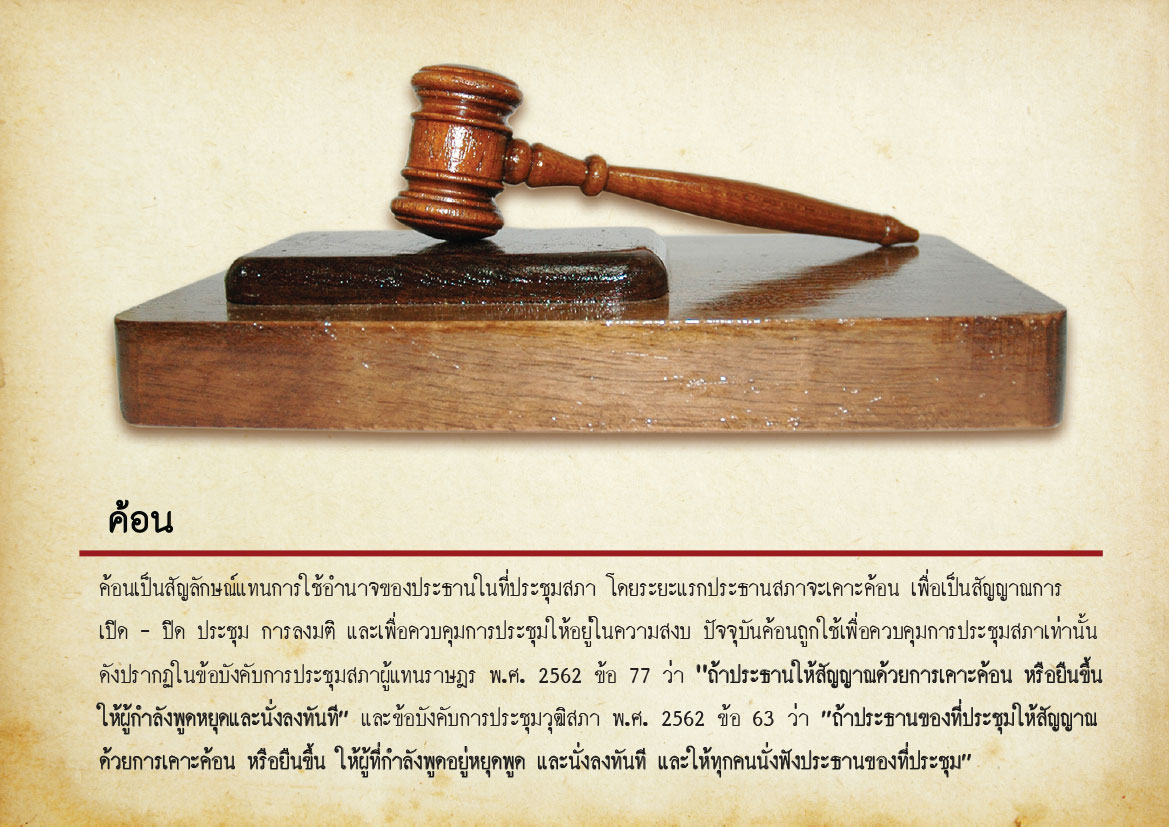 ค้อน
ค้อนเป็นสัญลักษณ์แทนการใช้อำนาจของประธานในที่ประชุมสภา โดยระยะแรกประธานสภาจะเคาะค้อน เพื่อเป็นสัญญาณการ
เปิด - ปิด ประชุม การลงมติ และเพื่อควบคุมการประชุมให้อยู่ในความสงบ ปัจจุบันค้อนถูกใช้เพื่อควบคุมการประชุมสภาเท่านั้น
ดังปรากฏในข้อบังคับการประชุมสภาผู้แทนราษฎร พ.ศ. 2562 ข้อ 77 ว่า "ถ้าประธานให้สัญญาณด้วยการเคาะค้อน หรือยืนขึ้น
ให้ผู้กำลังพูดหยุดและนั่งลงทันที" และข้อบังคับการประชุมวุฒิสภา พ.ศ. 2562 ข้อ 63 ว่า "ถ้าประธานของที่ประชุมให้สัญญาณ
ด้วยการเคาะค้อน หรือยืนขึ้น ให้ผู้ที่กำลังพูดอยู่หยุดพูด และนั่งลงทันที และให้ทุกคนนั่งฟังประธานของที่ประชุม"